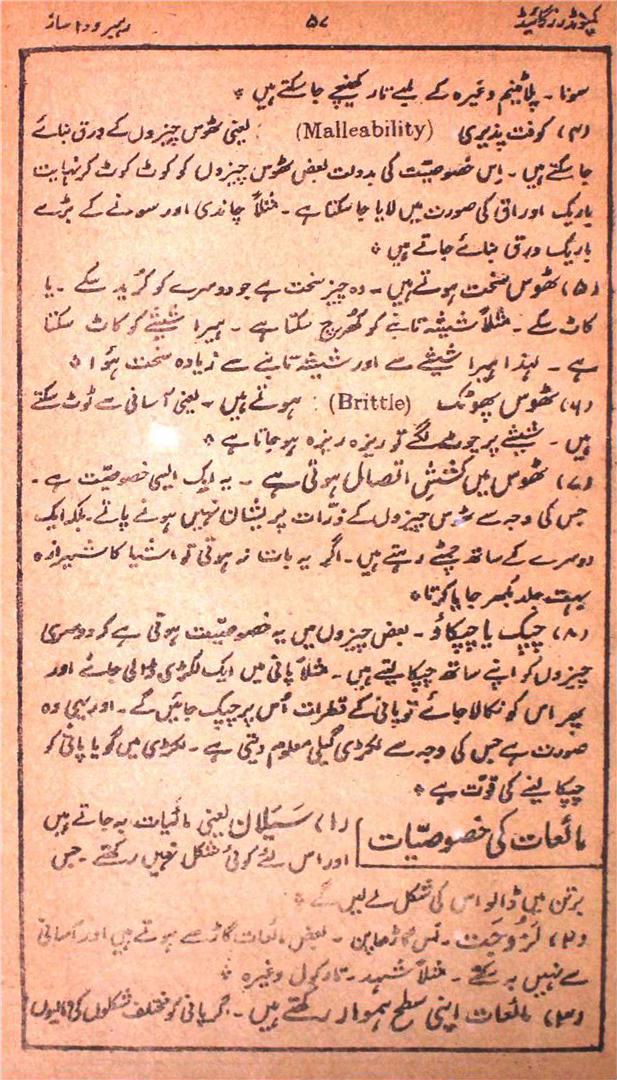 کمپونڈرز گائیڈ ۵۷ رہبر دوا ساز
سونا ۔ پلاٹینم وغیرہ کے لمبے تار کھینچے جا سکتے ہیں *
(۴) کوفت پذیری (Malleability) : یعنی ٹھوس چیزوں کے ورق بنائے
جا سکتے ہیں ۔ اس خصوصیّت کی بدولت بعض ٹھوس چیزوں کو کوٹ کوٹ کر نہایت
باریک اوراق کی صورت میں لایا جا سکتا ہے ۔ مثلاً چاندی اور سونے کے بڑے
باریک ورق بنائے جاتے ہیں *
(۵) ٹھوس سخت ہوتے ہیں ۔ وہ چیز سخت ہے جو دوسرے کو کُرید سکے ۔ یا
کاٹ سکے ۔ مثلاً شیشہ تانبے کو کھُرچ سکتا ہے ۔ ہیرا شیشے کو کاٹ سکتا
ہے ۔ لہٰذا ہیرا شیشے سے اور شیشہ تانبے سے زیادہ سخت ہؤا *
(۶) ٹھوس پھوٹک (Brittle) : ہوتے ہیں ۔ یعنی آسانی سے ٹوٹ سکتے
ہیں ۔ شیشے پر چوٹ لگے تو ریزہ ریزہ ہو جاتا ہے *
(۷) ٹھوس میں کششِ اتصال ہوتی ہے ۔ یہ ایک ایسی خصوصیّت ہے ۔
جس کی وجہ سے ٹھوس چیزوں کے ذرّات پریشان نہیں ہونے پاتے ۔ بلکہ ایک
دوسرے کے ساتھ چمٹے رہتے ہیں ۔ اگر یہ بات نہ ہوتی تو اشیا کا شیرازہ
بہت جلد بکھر جایا کرتا *
(۸) چپک یا چپکاؤ ۔ بعض چیزوں میں یہ خصوصیّت ہوتی ہے کہ دوسری
چیزوں کو اپنے ساتھ چپکا لیتے ہیں ۔ مثلاً پانی میں ایک لکڑی ڈالی جائے اور
پھر اس کو نکالا جائے تو پانی کے قطرات اُس پر چپک جائیں گے ۔ اور یہی وہ
صورت ہے جس کی وجہ سے لکڑی گیلی معلوم دیتی ہے ۔ لکڑی میں گویا پانی کو
چپکا لینے کی قوّت ہے *
مائعات کی خصوصیّات
(۱) سَیَلان یعنی مائیات بہ جاتے ہیں
اور اس لئے کوئی شکل نہیں رکھتے ۔ جس
برتن میں ڈالو اس کی شکل لے لیں گے *
(۲) لَزُوجَت ۔ لس گاڑھا پن ۔ بعض مائعات گاڑھے ہوتے ہیں اور آسانی
سے نہیں بہ سکتے ۔ مثلاً شہد ۔ تارکول وغیرہ *
(۳) مائعات اپنی سطح ہموار رکھتے ہیں ۔ گر پانی کو مختلف شکلوں کی نالیوں